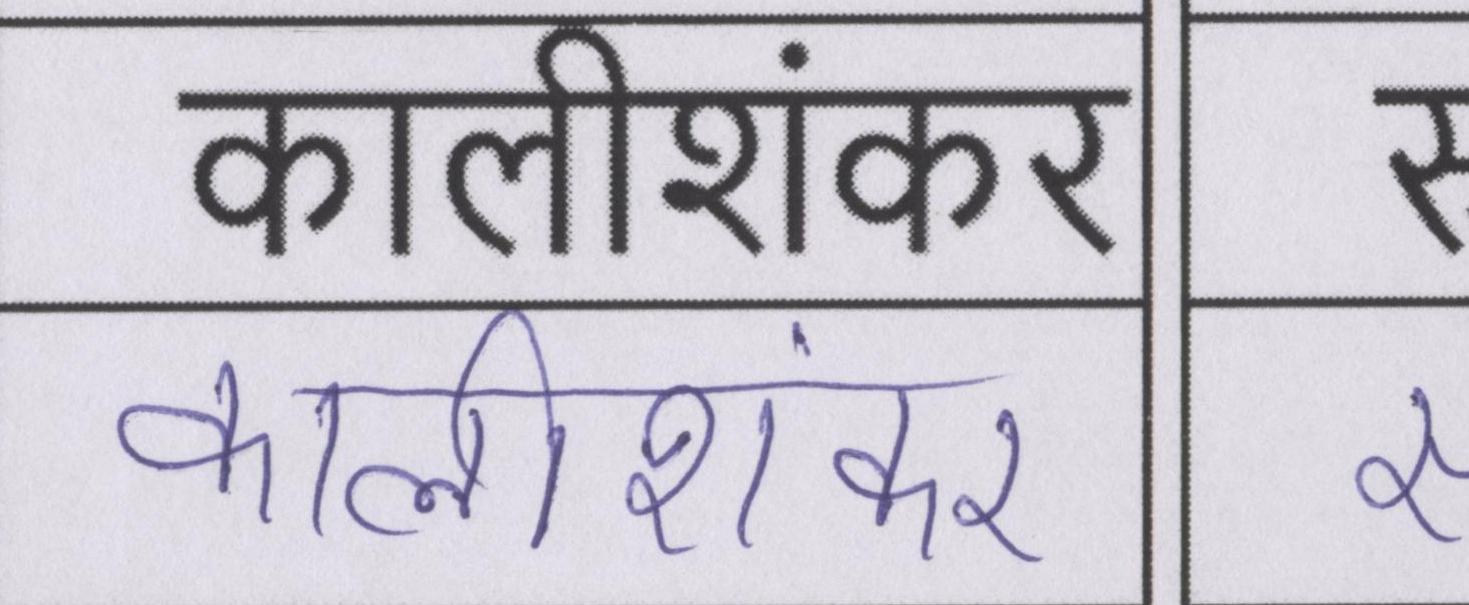 कालीशंकर
कालीशंकर